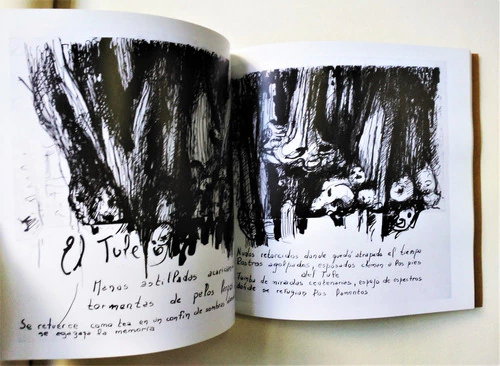 El Tule
Manos astillados acarician
tormentas de pelos largos
Se retuerce como tea en un confín de sombras
se agazapa la memoria
Nudos retorcidos donde quedó atrapado el tiempo
Rostros agolpados, esposados claman a los pies
del Tule
Tumba de miradas centenarias, espejo de espectros
donde se refugian los lamentos